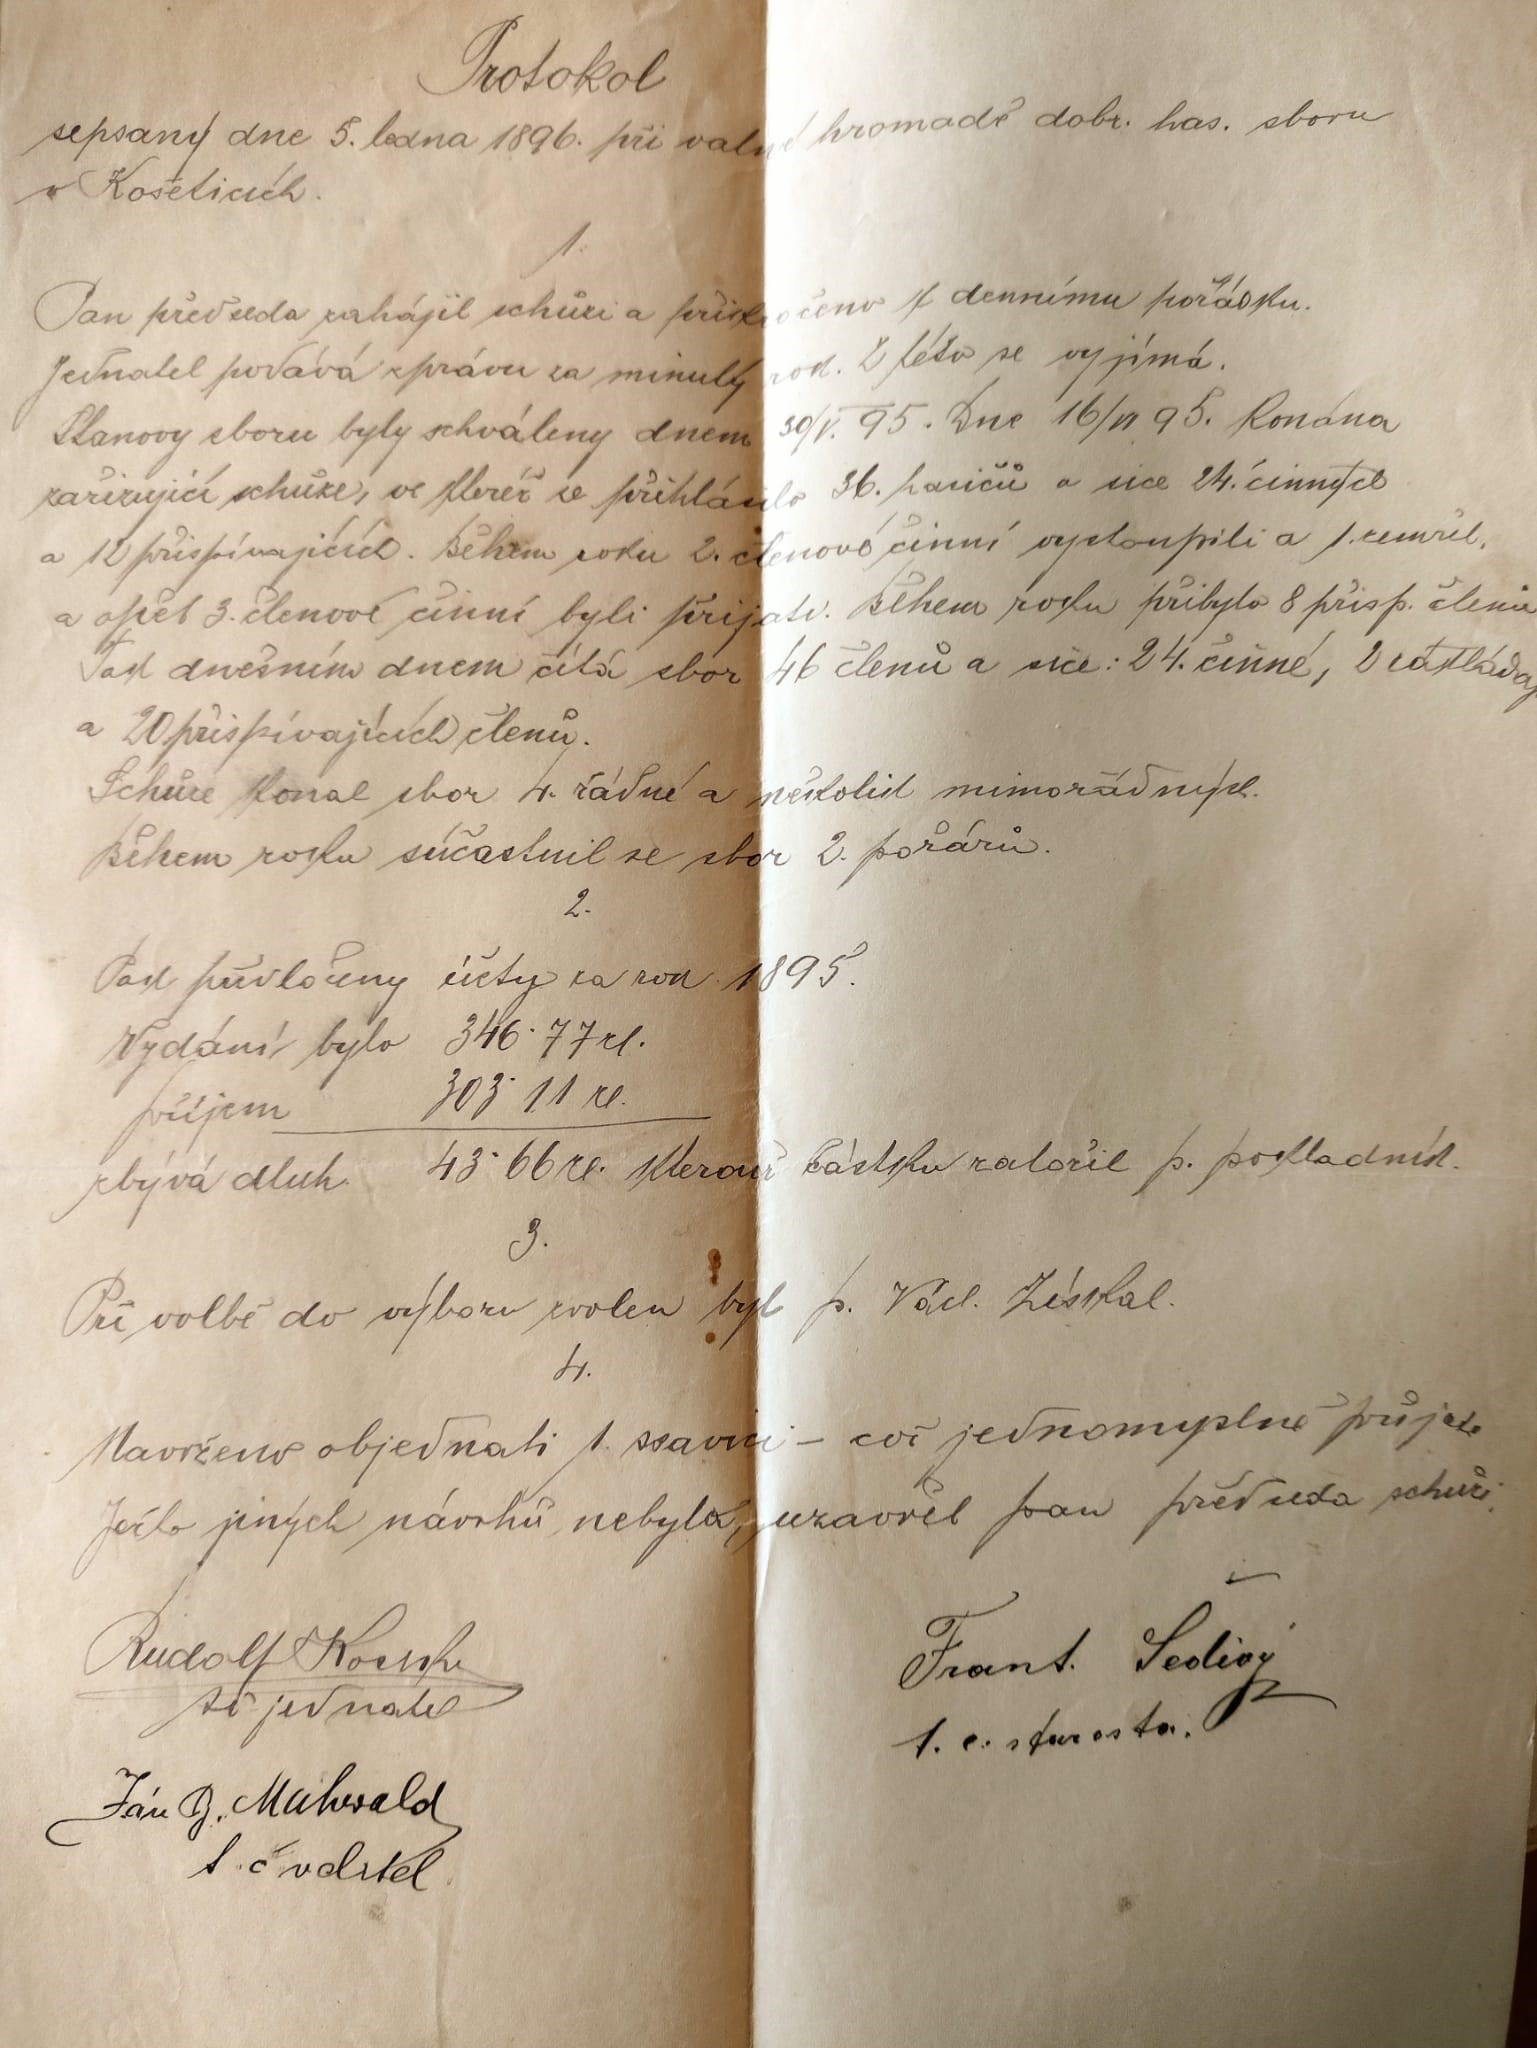 Protokol
sepsaný dne 5. ledna 1896. při valné hromadě dobr. has. sboru
v Košeticích.
1.
Pan předseda zahájil schůzi a přikročeno k dennímu pořádku.
Jednatel podává zprávu za minulý rok. Z této se vyjímá.
Stanovy sboru byly schváleny dnem 30/V. 95. Dne 16/VI 95. konána
zařizující schůze, ve kteréž se přihlásilo 36. hasičů a sice 24. činných
a 12 přispívajících. Během roku 2. členové činní vystoupili a 1. zemřel,
a opět 3. členové činní byli přijati. Během roku přibylo 8 přisp. členů
Tak dnešním dnem čítá sbor 46 členů a sice: 24. činné, 2 zakládaj
a 20 přispívajících členů.
Schůze konal sbor 4. řádné a několik mimořádných.
Během roku súčastnil se sbor 2. požárů.
2.
Pak předloženy účty za rok 1895.
Vydání bylo 346·77 zl.
příjem 303·11 zl.
zbývá dluh 43·66 zl. kterouž částku založil p. pokladník.
3.
Při volbě do výboru zvolen byl p. Václ. Získal.
4.
Navrženo objednati 1. ssavici – což jednomyslně přijato
Ježto jiných návrhů nebylo, uzavřel pan předseda schůzi.
Rudolf
jednatel
Frant. Šedivý
t. č. starosta.
Ján B. Muhwald
t. č velitel